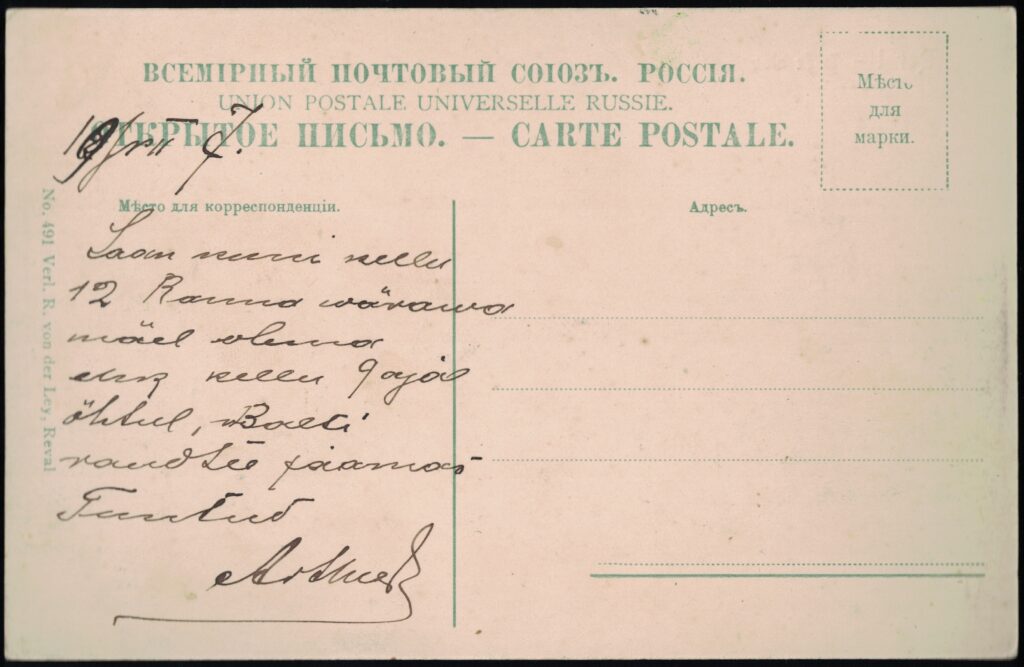 ВСЕМІРНЫЙ ПОЧТОВЫЙ СОЮЗЪ. РОССІЯ.
UNION POSTALE UNIVERSELLE RUSSIE.
ОТКРЫТОЕ ПИСЬМО. — CARTE POSTALE.
Мѣсто
для
марки.
Мѣсто для корреспонденціи.
Адресъ.
No. 491 Verl. R. von der Ley, Reval
7.
Saan kuni kella
12 Ranna wärawa
mäel olema
ehk kella 9 ajal
õhtul, Balti
raudtee jaamas
Tuntud
Arthur